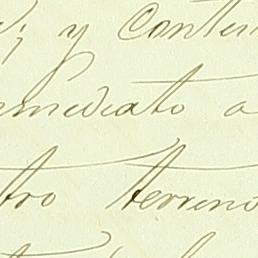 ; y Conten
nmediato a
tro terreno